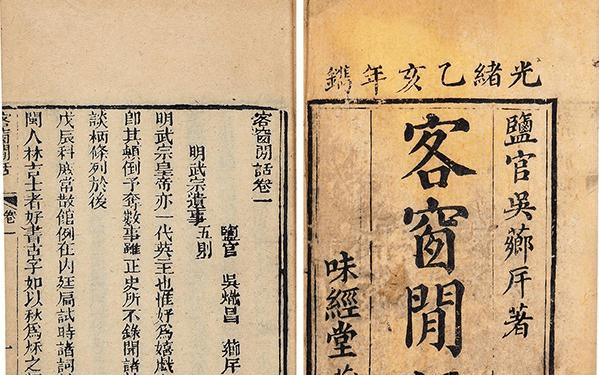 光緒乙亥年鐫
鹽官吳薌厈著
客窗閒
味經堂
客窗閒話卷一
明武宗遺事 五則
鹽官 吳熾昌 薌厈
明武宗皇帝亦一代英主也惟好為嬉戲
卽其顛倒予奪數事雖正史所不錄聞諸
談柄條列於後
戊辰科庶常散館例在內廷扃試時諸詞
閩人林吉士者好書古字如以秋為秌之
客窗閒話 卷一 一